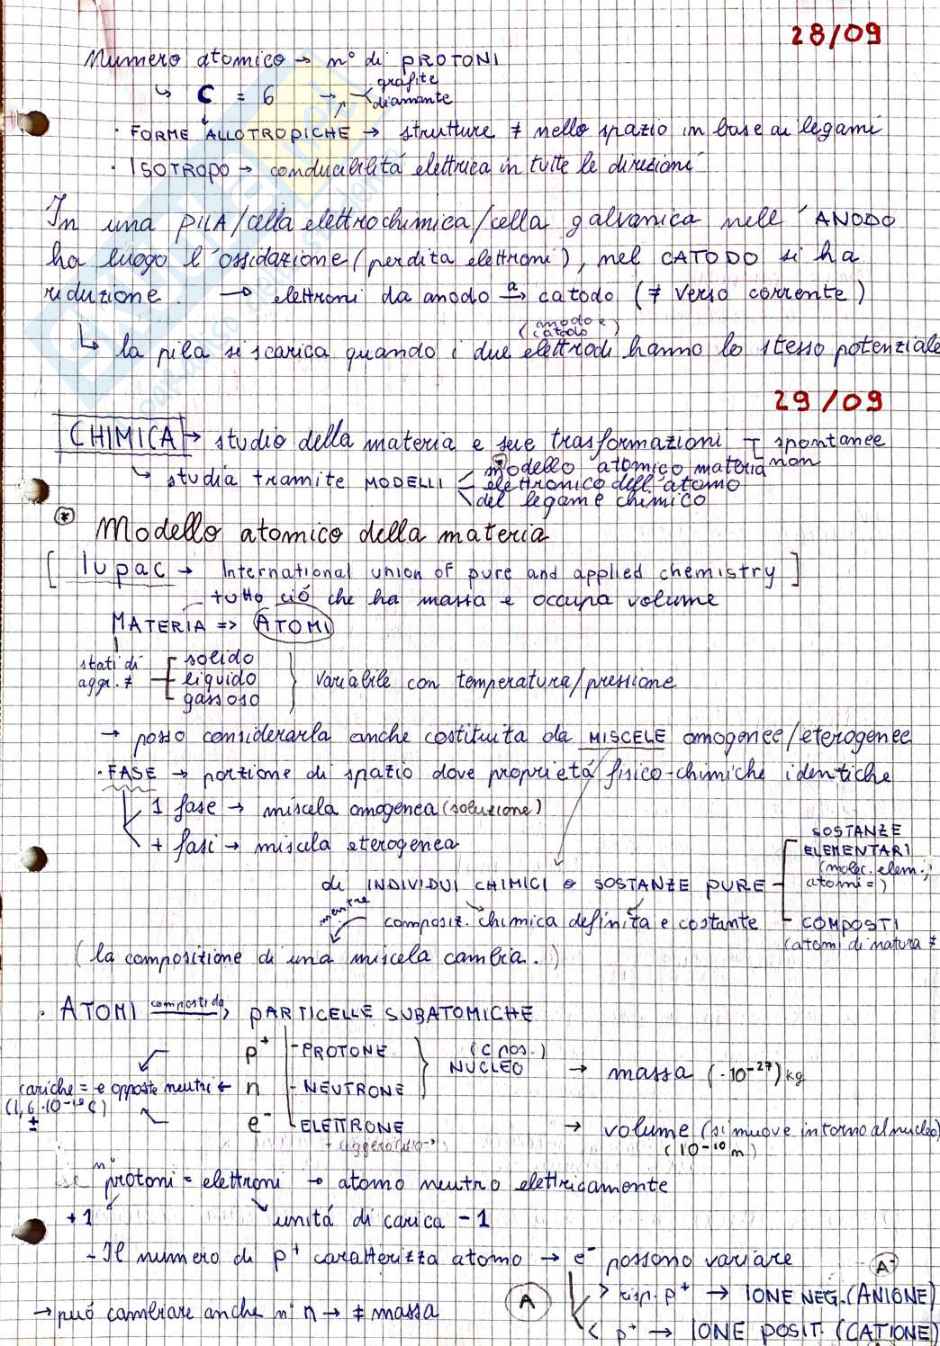 28/09
Numero atomico → n° di PROTONI
↳ C = 6 → grafite
diamante
· FORME ALLOTROPICHE → strutture ≠ nello spazio in base ai legami
· ISOTROPO → conducibilitá elettrica in tutte le direzioni
In una PILA/cella elettrochimica/cella galvanica nell'ANODO
ha luogo l'ossidazione (perdita elettroni), nel CATODO si ha
riduzione. → elettroni da anodo a→ catodo (≠ verso corrente)
(anodo e
catodo)
↳ la pila si scarica quando i due elettrodi hanno lo stesso potenziale
29/09
CHIMICA → studio della materia e sue trasformazioni spontanee
non
↳ studia tramite MODELLI modello atomico materia
elettronico dell'atomo
del legame chimico
* Modello atomico della materia
[ Iupac → International union of pure and applied chemistry ]
tutto ció che ha massa e occupa volume
MATERIA => ATOMI
stati di
aggr. ≠
solido
liquido
gassoso
variabile con temperatura/pressione
→ posso considerarla anche costituita da MISCELE omogenee/eterogenee
· FASE → porzione di spazio dove proprietá fisico-chimiche identiche
1 fase → miscela omogenea (soluzione)
+ fasi → miscela eterogenea
di INDIVIDUI CHIMICI o SOSTANZE PURE
SOSTANZE
ELEMENTARI
(molec. elem.;
atomi =)
COMPOSTI
(atomi di natura ≠
mentre
composiz. chimica definita e costante
(la composizione di una miscela cambia.)
· ATOMI composti da → PARTICELLE SUBATOMICHE
p⁺ - PROTONE
n - NEUTRONE
e⁻ - ELETTRONE
(C pos.)
NUCLEO
→ massa (·10⁻²⁷) kg
cariche = e opposte neutri ←
(1,6·10⁻¹⁹ C)
±
→ volume (si muove intorno al nucleo)
(10⁻¹⁰ m)
n° protoni = elettroni → atomo neutro elettricamente
+1 unitá di carica -1
- Il numero di p⁺ caratterizza atomo → e⁻ possono variare
A⁻
> risp. p⁺ → IONE NEG. (ANIONE)
→ puó cambiare anche n° n → ≠ massa
A
< p⁺ → IONE POSIT. (CATIONE)